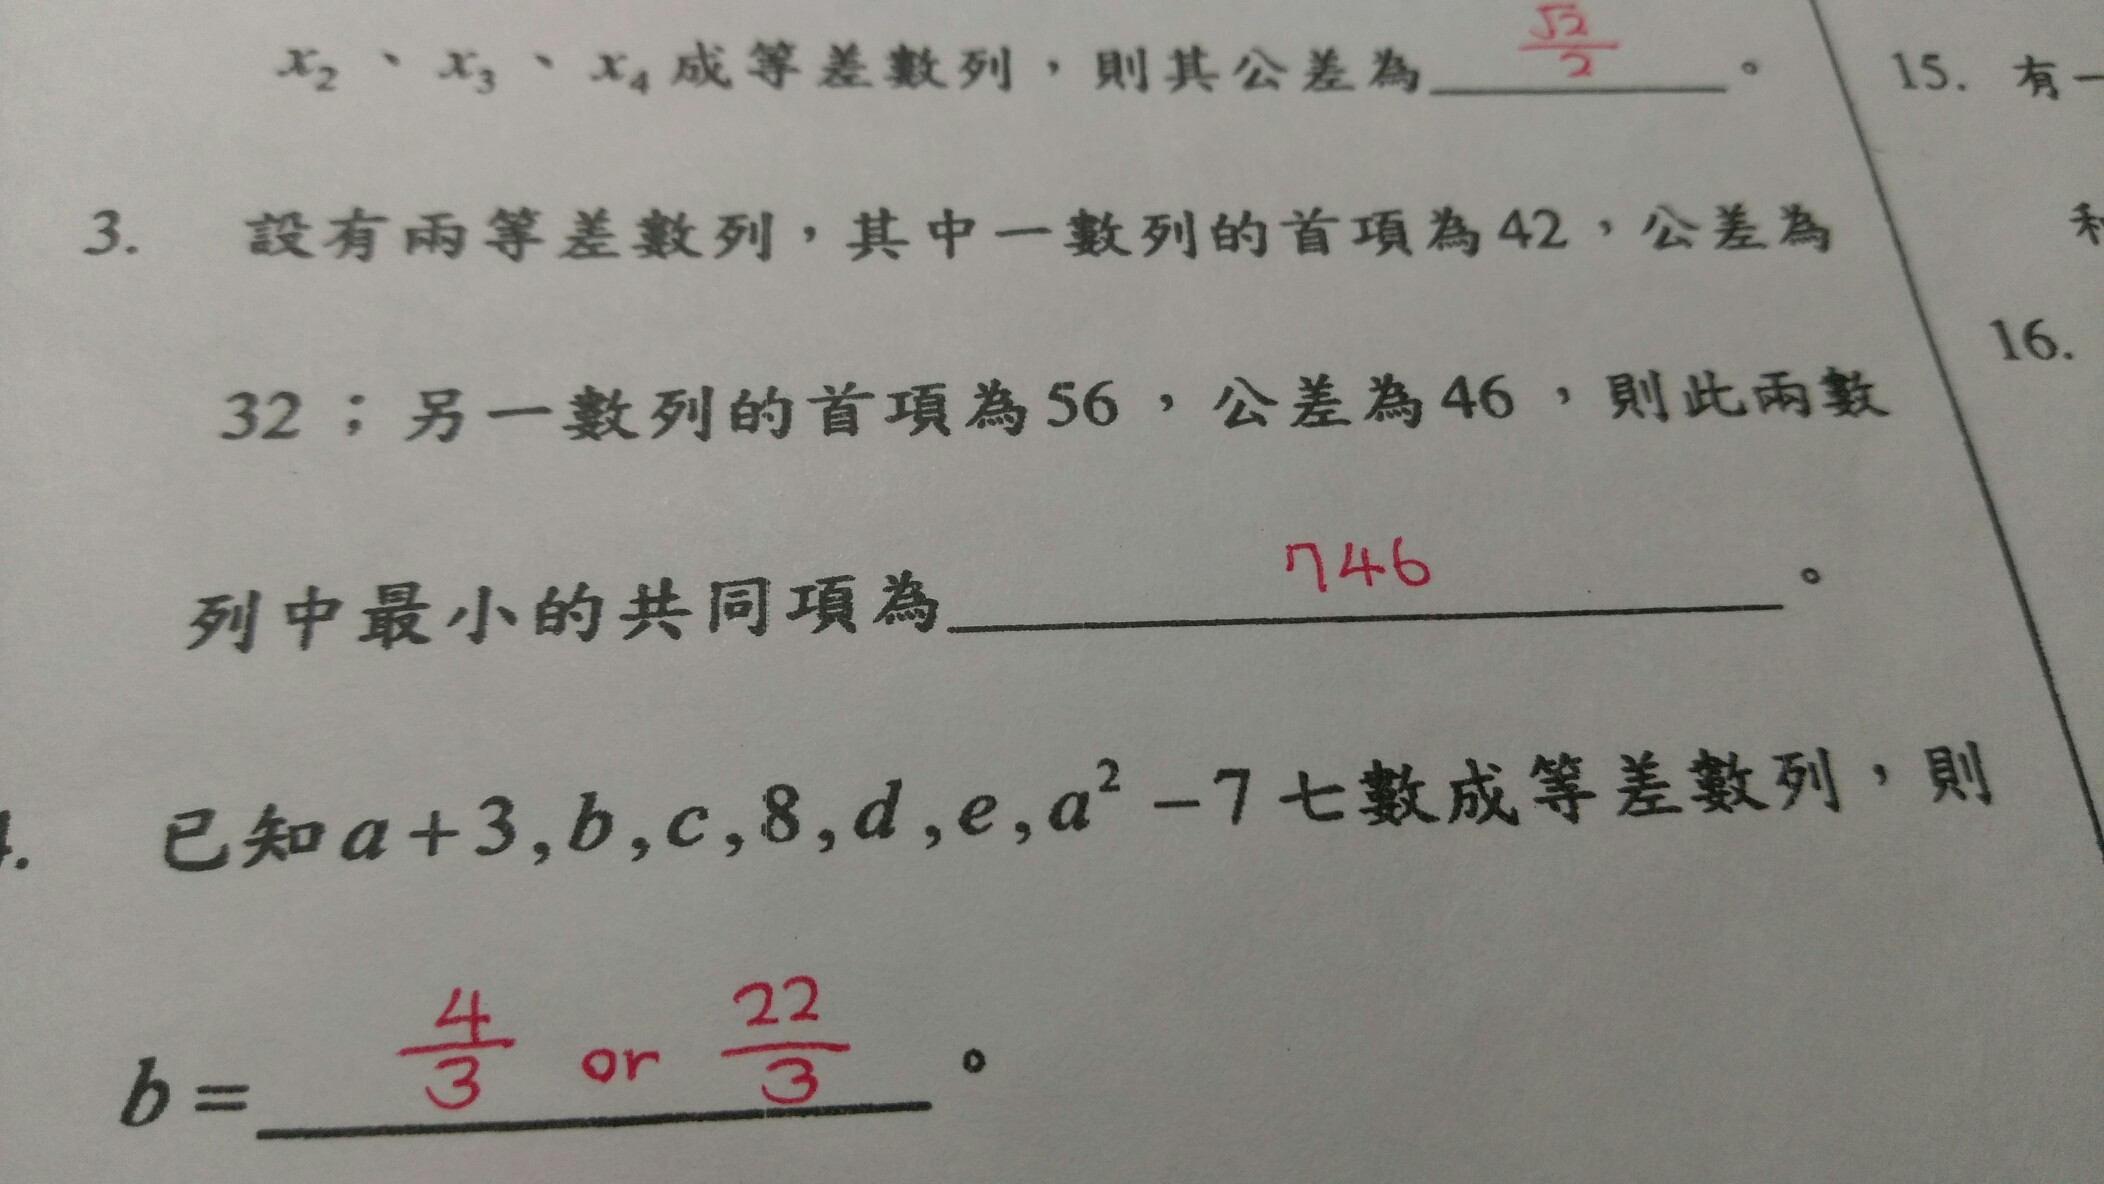 x₂、x₃、x₄成等差數列，則其公差為 √2/2 。
3. 設有兩等差數列，其中一數列的首項為42，公差為
32；另一數列的首項為56，公差為46，則此兩數
列中最小的共同項為 746 。
已知a+3,b,c,8,d,e,a²−7七數成等差數列，則
b= 4/3 or 22/3 。
15. 有一
16.